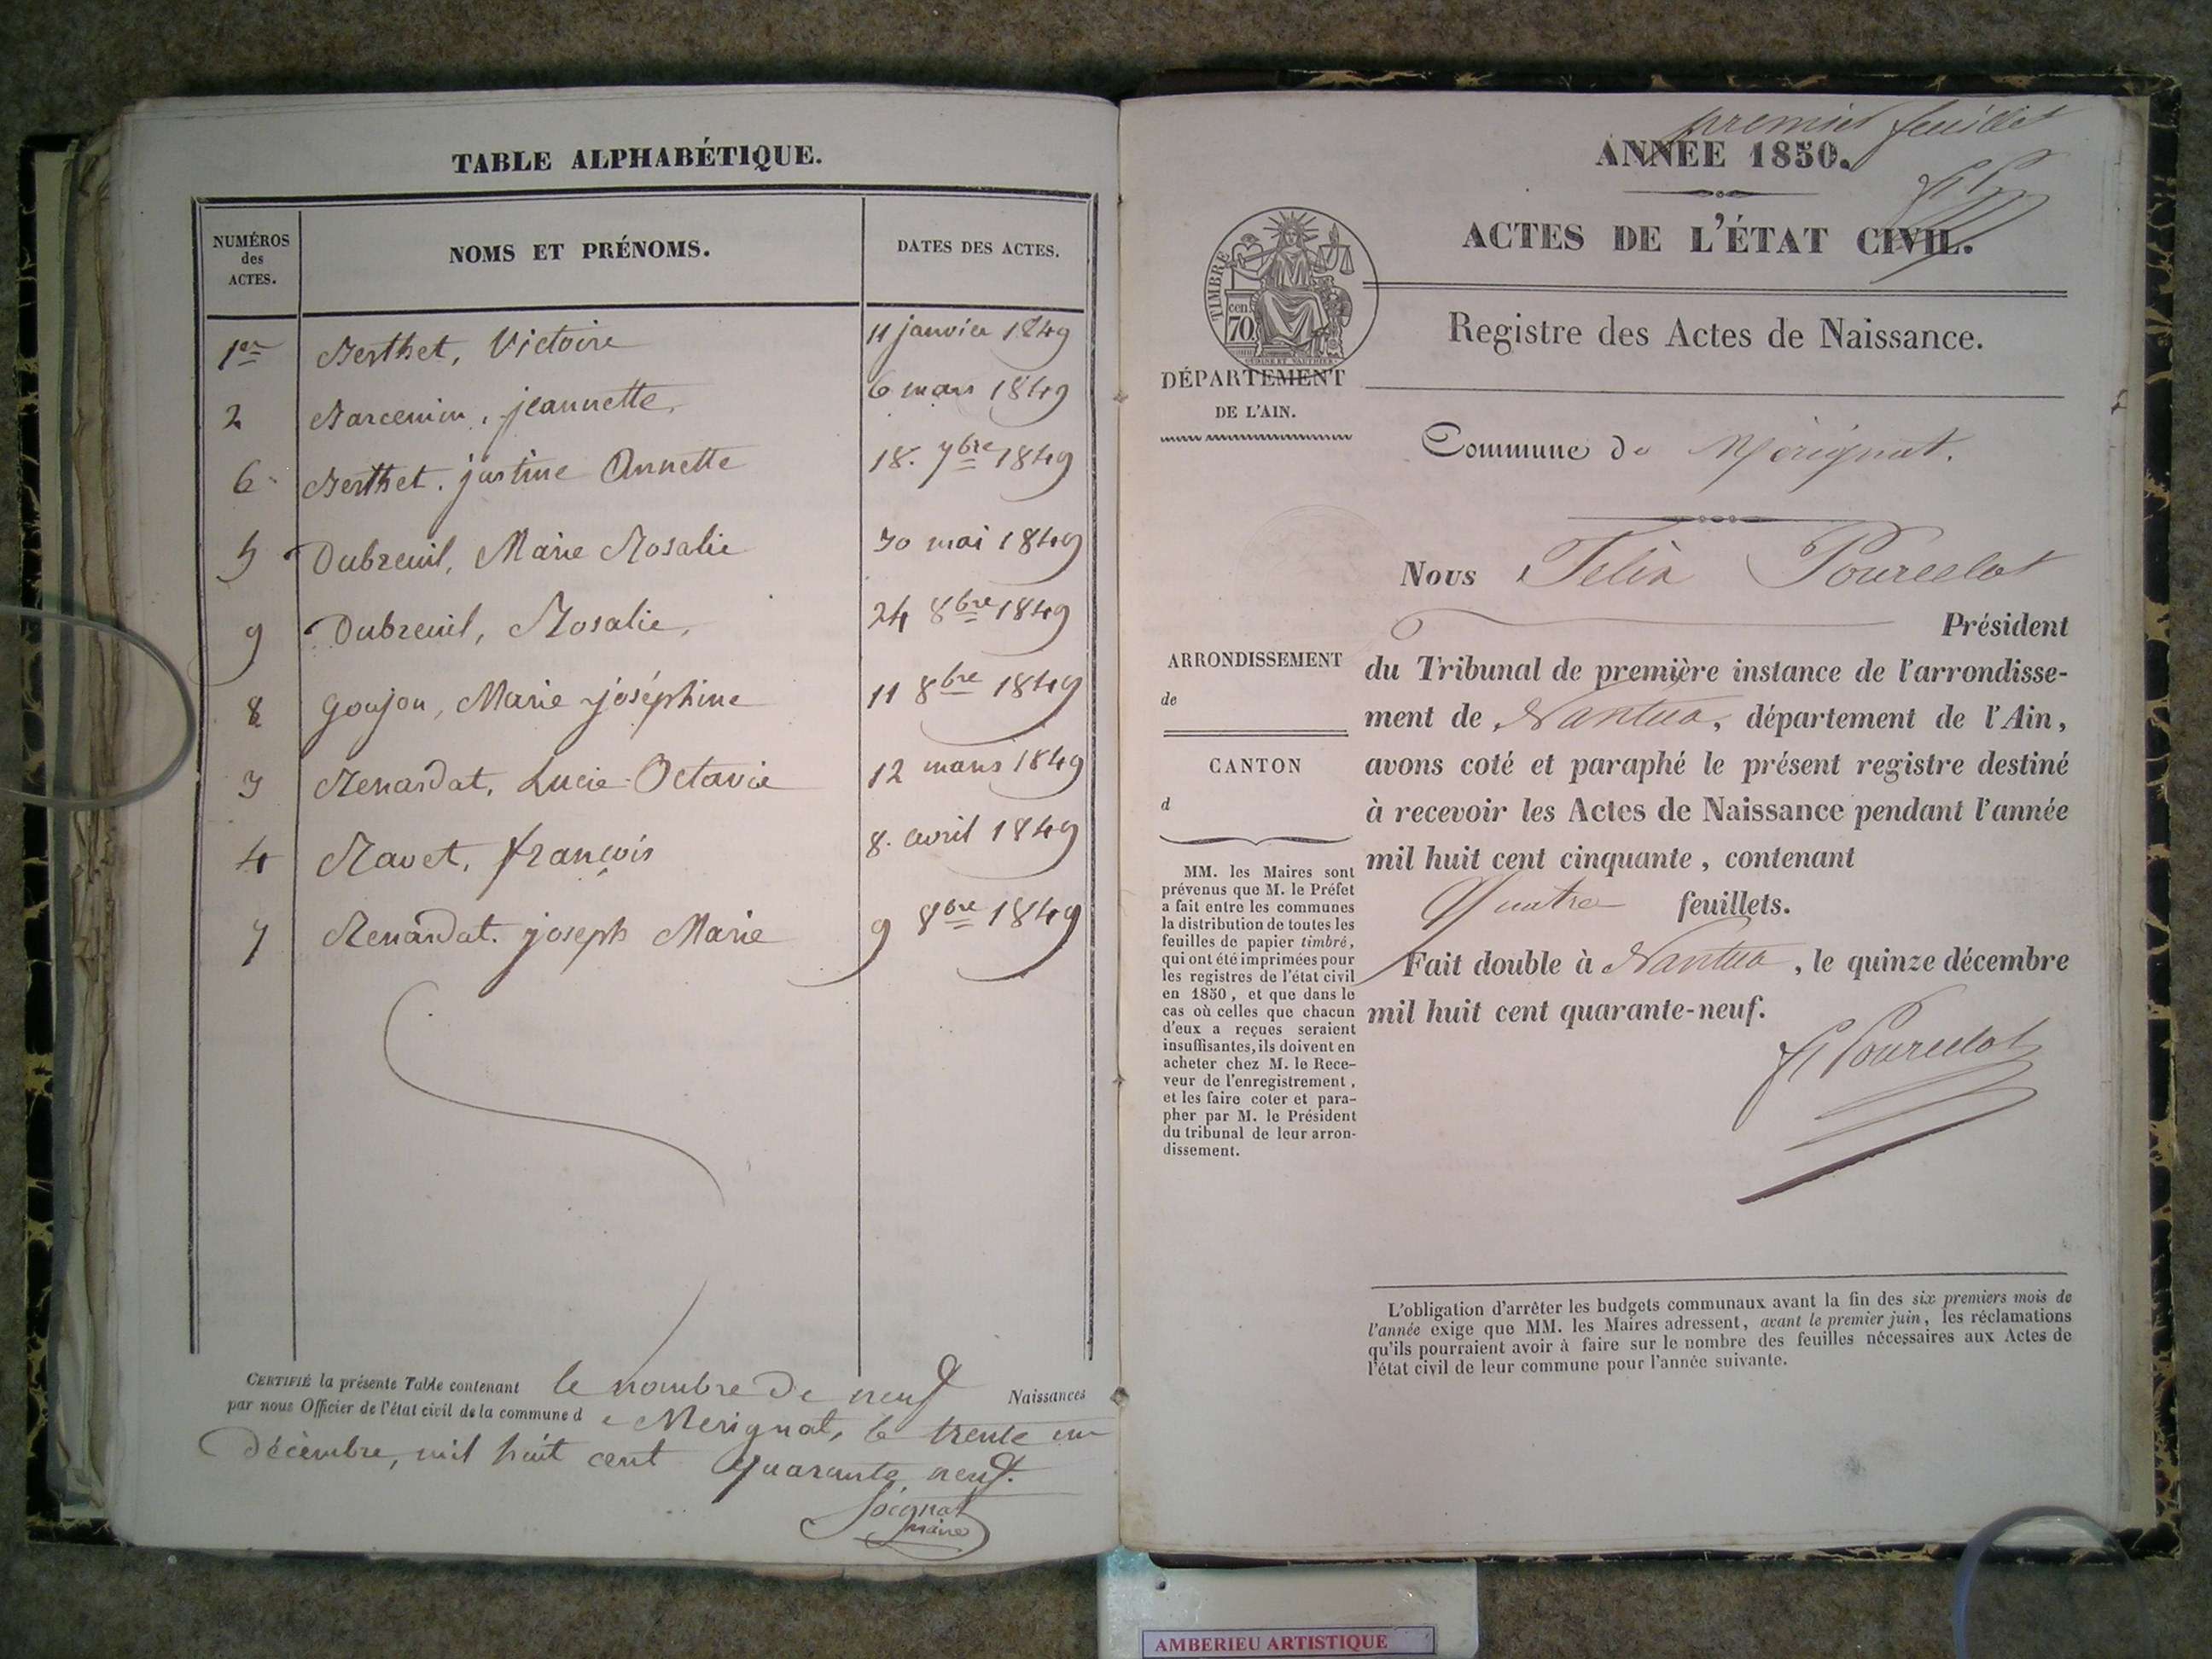 TABLE ALPHABÉTIQUE.
NUMÉROS des ACTES. NOMS ET PRÉNOMS. DATES DES ACTES.
1er Berthet, Victoire 11 janvier 1849
2 Barcenin, jeannette, 6 mars 1849
6 Berthet. justine Annette 18. 7bre 1849
5 Dubreuil, Marie Rosalie 30 mai 1849
9 Dubreuil, Rosalie, 24 8bre 1849
8 Goujon, Marie joséphine 11 8bre 1849
3 Renardat, Lucie Octavie 12 mars 1849
4 Ravet, françois 8. avril 1849
7 Renardat. joseph Marie 9 8bre 1849
CERTIFIÉ la présente Table contenant le nombre de neuf Naissances
par nous Officier de l'état civil de la commune d e Merignat, le trente un
décembre, mil huit cent quarante neuf.
maire
premier feuillet
ANNÉE 1850.
ACTES DE L'ÉTAT CIVIL.
TIMBRE
70 cen
Registre des Actes de Naissance.
DÉPARTEMENT
DE L'AIN.
Commune de Mérignat.
Nous Félix Pourcelot
Président
ARRONDISSEMENT
de
CANTON
d
du Tribunal de première instance de l'arrondisse-
ment de Nantua, département de l'Ain,
avons coté et paraphé le présent registre destiné
à recevoir les Actes de Naissance pendant l'année
mil huit cent cinquante, contenant
Quatre feuillets.
Fait double à Nantua, le quinze décembre
mil huit cent quarante-neuf.
f Pourcelot
MM. les Maires sont
prévenus que M. le Préfet
a fait entre les communes
la distribution de toutes les
feuilles de papier timbré,
qui ont été imprimées pour
les registres de l'état civil
en 1850, et que dans le
cas où celles que chacun
d'eux a reçues seraient
insuffisantes, ils doivent en
acheter chez M. le Rece-
veur de l'enregistrement,
et les faire coter et para-
pher par M. le Président
du tribunal de leur arron-
dissement.
L'obligation d'arrêter les budgets communaux avant la fin des six premiers mois de
l'année exige que MM. les Maires adressent, avant le premier juin, les réclamations
qu'ils pourraient avoir à faire sur le nombre des feuilles nécessaires aux Actes de
l'état civil de leur commune pour l'année suivante.
AMBERIEU ARTISTIQUE